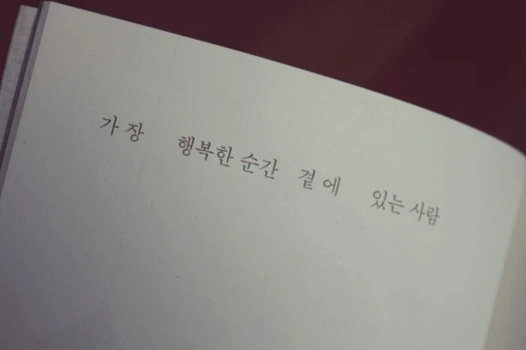 가장 행복한 순간 곁에 있는 사람